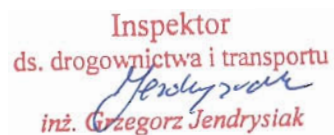 Inspektor
ds. drogownictwa i transportu
inż. Grzegorz Jendrysiak